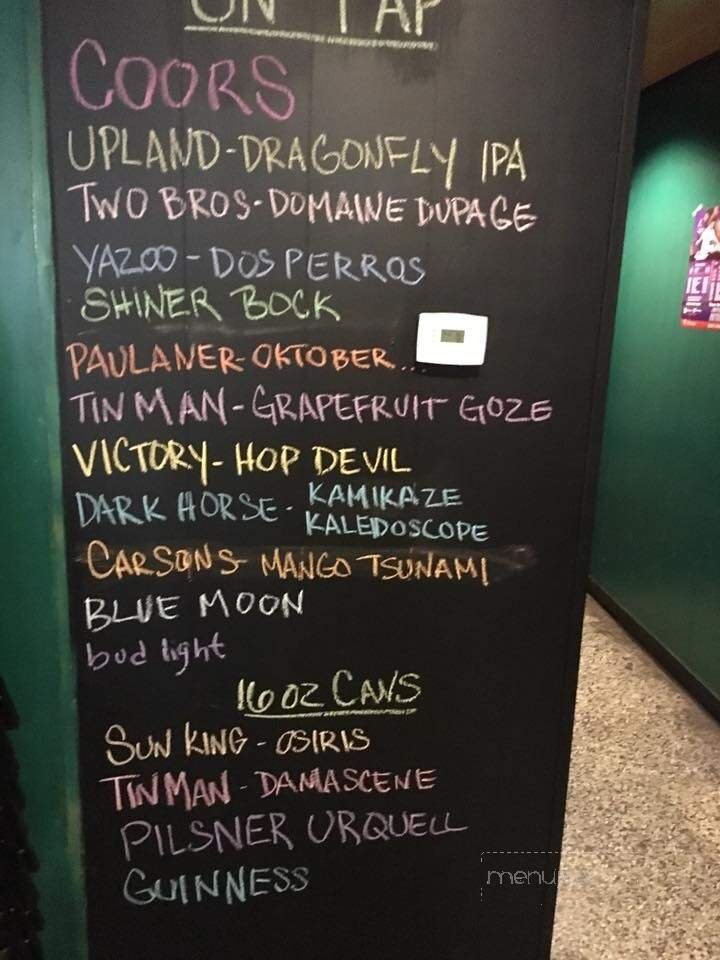 ON TAP
COORS
UPLAND-DRAGONFLY IPA
TWO BROS-DOMAINE DUPAGE
YAZOO-DOS PERROS
SHINER BOCK
PAULANER-OKTOBER...
TIN MAN-GRAPEFRUIT GOZE
VICTORY-HOP DEVIL
DARK HORSE-KAMIKAZE
KALEDOSCOPE
CARSONS-MANGO TSUNAMI
BLUE MOON
bud light
16 OZ CANS
SUN KING-OSIRIS
TIN MAN-DAMASCENE
PILSNER URQUELL
GUINNESS
menu